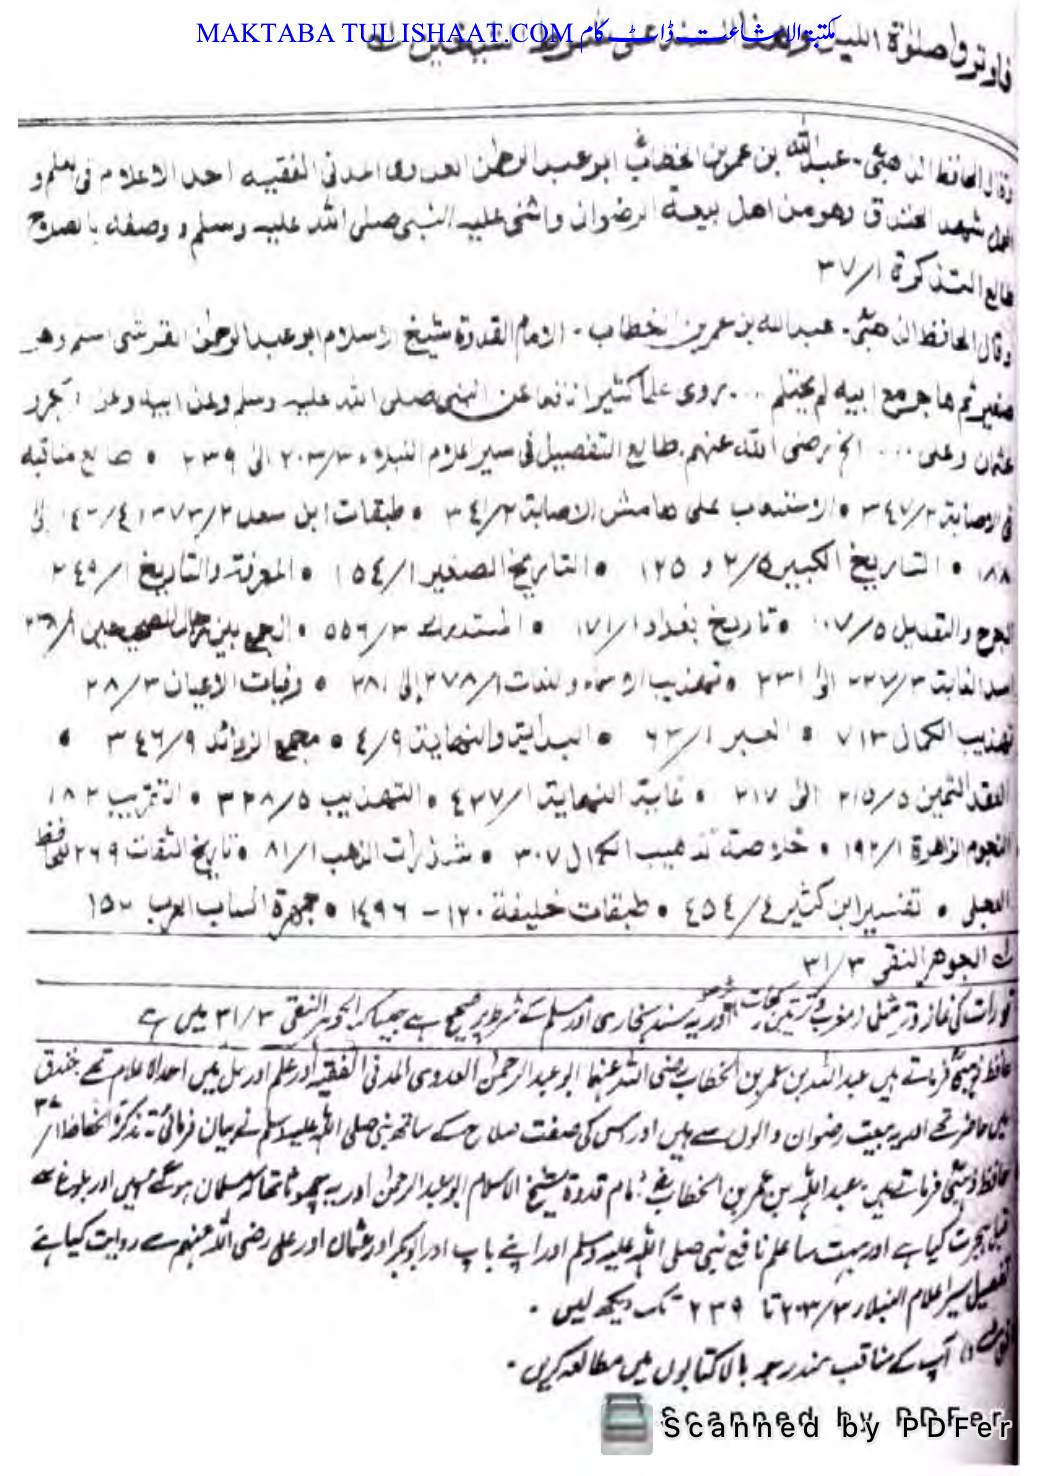 MAKTABA TULISHAAT.COM مکتبۃ الاشاعت ڈاٹ کام
فاوتروا صلوٰة اللیل
وقال الحافظ الذهبیؒ - عبداللّٰه بن عمر بن الخطابؓ ابو عبد الرحمٰن العدوی المدنی الفقیه احد الاعلام فی العلم و
العمل شهد الخندق وهو من اهل بیعة الرضوان واثنی علیه النبی صلی اللّٰه علیه وسلم و وصفه بالصلاح
طالع التذکرة ١/٣٧
وقال الحافظ الذهبیؒ - عبدالله بن عمر بن الخطاب - الامام القدوة شیخ الاسلام ابو عبد الرحمٰن القرشی اسلم وهو
صغیر ثم هاجر مع ابیه لم یحتلم ... روی علما کثیرا نافعا عن النبی صلی اللّٰه علیه وسلم وعن ابیه وعن ابی بکر و
عثمان وعلی ... الخ رضی اللّٰه عنهم. طالع التفصیل فی سیر اعلام النبلاء ٣/٢٠٣ الی ٢٣٩ • طالع مناقبه
فی الاصابة ٢/٣٤٧ • الاستیعاب علی هامش الاصابة ٢/٣٤١ • طبقات ابن سعد ٢/٣٧٣ ٤/١٤٢ الی
١٨٨ • التاریخ الکبیر ٥/٢ و ١٢٥ • التاریخ الصغیر ١/١٥٤ • المعرفة والتاریخ ١/٢٤٩
الجرح والتعدیل ٥/١٠٧ • تاریخ بغداد ١/١٧١ • المستدرک ٣/٥٥٦ • الجمع بین رجال الصحیحین ١/٢٣٨
اسد الغابة ٣/٢٢٧ الی ٢٣١ • تهذیب الاسماء واللغات ١/٢٧٨ الی ٢٨١ • وفیات الاعیان ٣/٢٨
تهذیب الکمال ٧١٣ • العبر ١/٦٣ • البدایة والنهایة ٩/٤ • مجمع الزوائد ٩/٣٤٦ •
العقد الثمین ٥/٢١٥ الی ٢١٧ • غایة النهایة ١/٤٣٧ • التهذیب ٥/٣٢٨ • التقریب ١٨٢
النجوم الزاهرة ١/١٩٢ • خلاصة تذهیب الکمال ٢٠٧ • شذرات الذهب ١/٨١ • تاریخ الثقات ٢٦٩ للحافظ
العجلی • تفسیر ابن کثیر ٤/٤٥٤ • طبقات خلیفة ١٢٠ - ١٤٩٦ • جمهرة انساب العرب ١٥٢
الجوهر النقی ٣/٣١
تو رات کی نماز وتر مثل مغرب کے تین رکعات اور یہ سند بخاری اور مسلم کے شرط پر صحیح ہے جیسا کہ الجوہر النقی ٣/٣١ میں ہے
حافظ ذہبیؒ فرماتے ہیں عبداللّٰہ بن عمر بن الخطاب رضی اللّٰہ عنہما ابو عبد الرحمٰن العدوی المدنی الفقیہ اور علم اور عمل میں احد الاعلام تھے خندق
میں حاضر تھے اور یہ بیعت رضوان والوں سے ہیں اور جس کی صفت صلاح کے ساتھ نبی صلی اللّٰہ علیہ وسلم نے بیان فرمائی۔ تذکرۃ الحفاظ ١/٣٧
حافظ ذہبیؒ فرماتے ہیں۔ عبداللّٰہ بن عمر بن الخطابؓ امام قدوة شیخ الاسلام ابو عبد الرحمٰن اور یہ چھوٹا تھا کہ مسلمان ہوگئے ہیں اور بلوغ سے
قبل ہجرت کیا ہے اور بہت سا علم نافع نبی صلی اللّٰہ علیہ وسلم اور اپنے باپ اور ابوبکر اور عثمان اور علی رضی اللّٰہ عنہم سے روایت کیا ہے
تفصیل سیر اعلام النبلاء ٣/٢٠٣ تا ٢٣٩ تک دیکھ لیں۔
آپ کے مناقب مندرجہ بالا کتابوں میں مطالعہ کریں۔
Scanned by PDFer